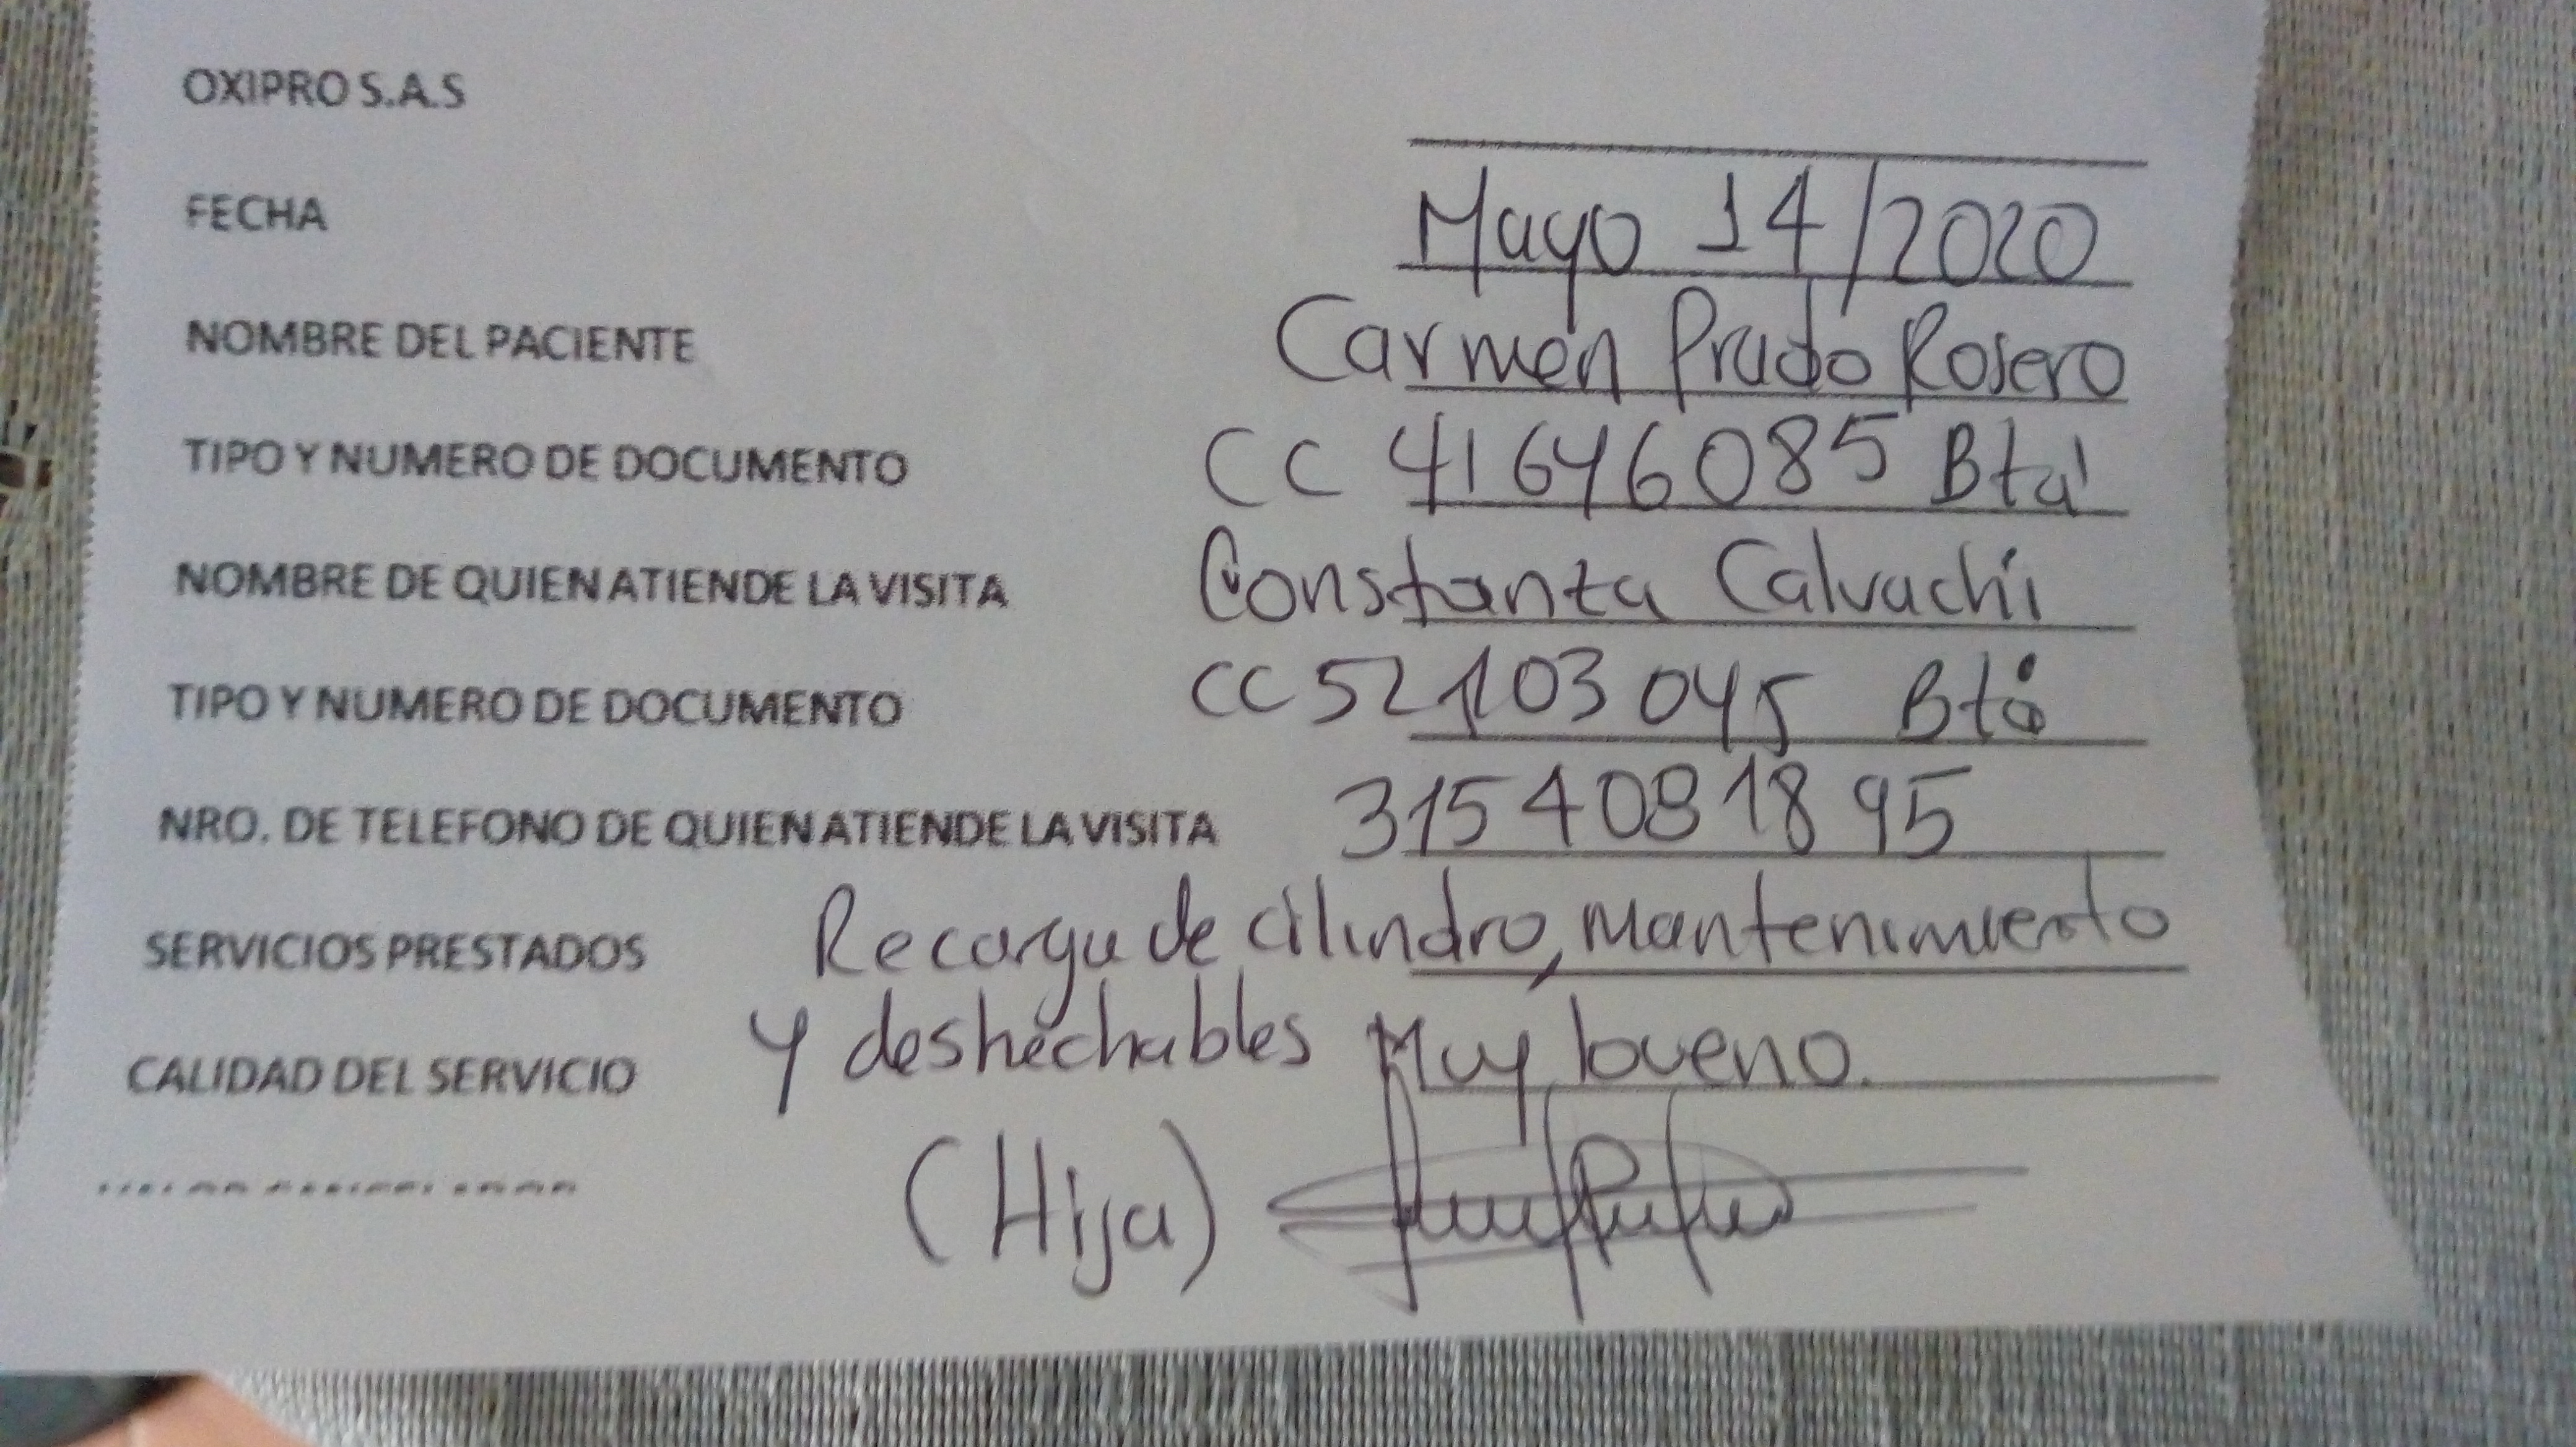 OXIPRO S.A.S
FECHA Mayo 14/2020
NOMBRE DEL PACIENTE Carmen Prado Rosero
TIPO Y NUMERO DE DOCUMENTO CC 41646085 Bta
NOMBRE DE QUIEN ATIENDE LA VISITA Constanza Calvachi
TIPO Y NUMERO DE DOCUMENTO CC 52103045 Bta
NRO. DE TELEFONO DE QUIEN ATIENDE LA VISITA 3154081895
SERVICIOS PRESTADOS Recarga de cilindro, mantenimiento
y deshechables
CALIDAD DEL SERVICIO Muy bueno.
(Hija)